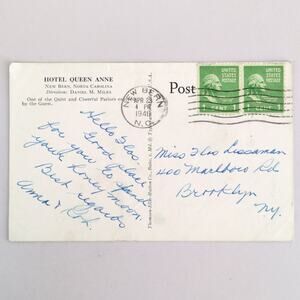 HOTEL QUEEN ANNE
NEW BERN, NORTH CAROLINA
Direction: DANIEL M. MILES
One of the Quiet and Cheerful Parlors
by the Guest.
Hello Flo.
Good place
for you to spend
your honey moon.
Best regards
Anna &
Post
NEW BERN
APR 23
4 PM
1946
N.C.
UNITED STATES
POSTAGE
UNITED STATES
POSTAGE
Miss Flo Lissaman
400 Marlboro Rd
Brooklyn
NY.